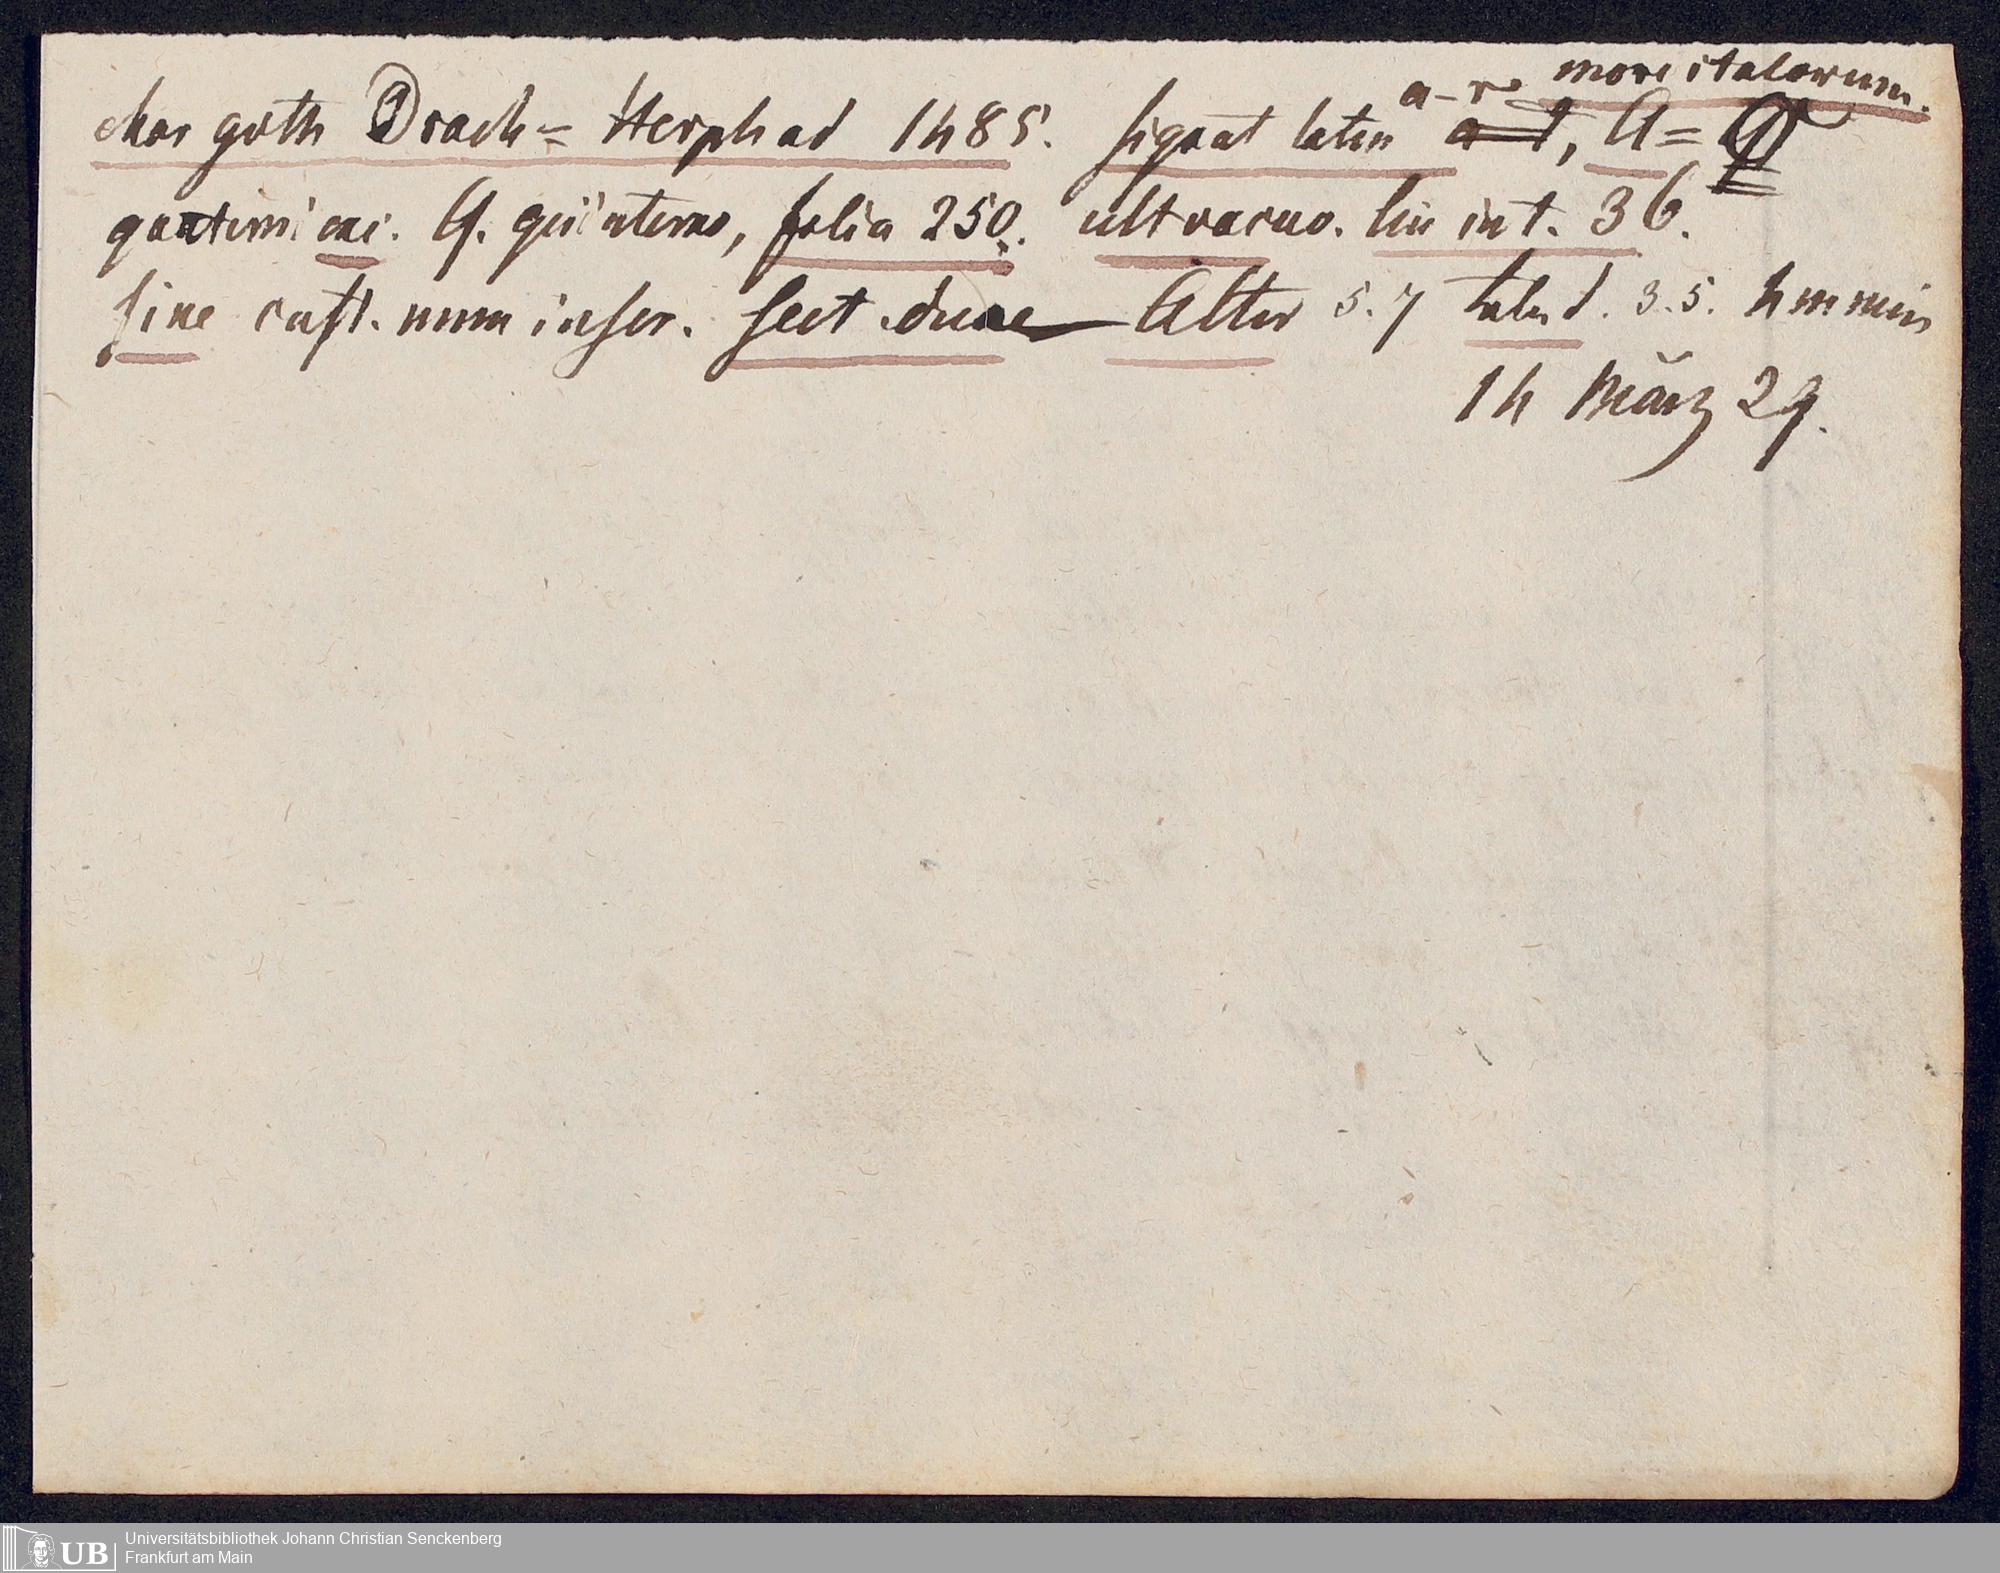 a-r more italorum.
char goth Drach= Herph ad 1485. signat latin a-t, A=Q
quaterni exc. Q. quinterno, folia 250. ult vacuo. lin int. 36.
sine cust. num inscr. sect duae Alter 5. 7 3. 5.
14 März 29.
UB Universitätsbibliothek Johann Christian Senckenberg
Frankfurt am Main